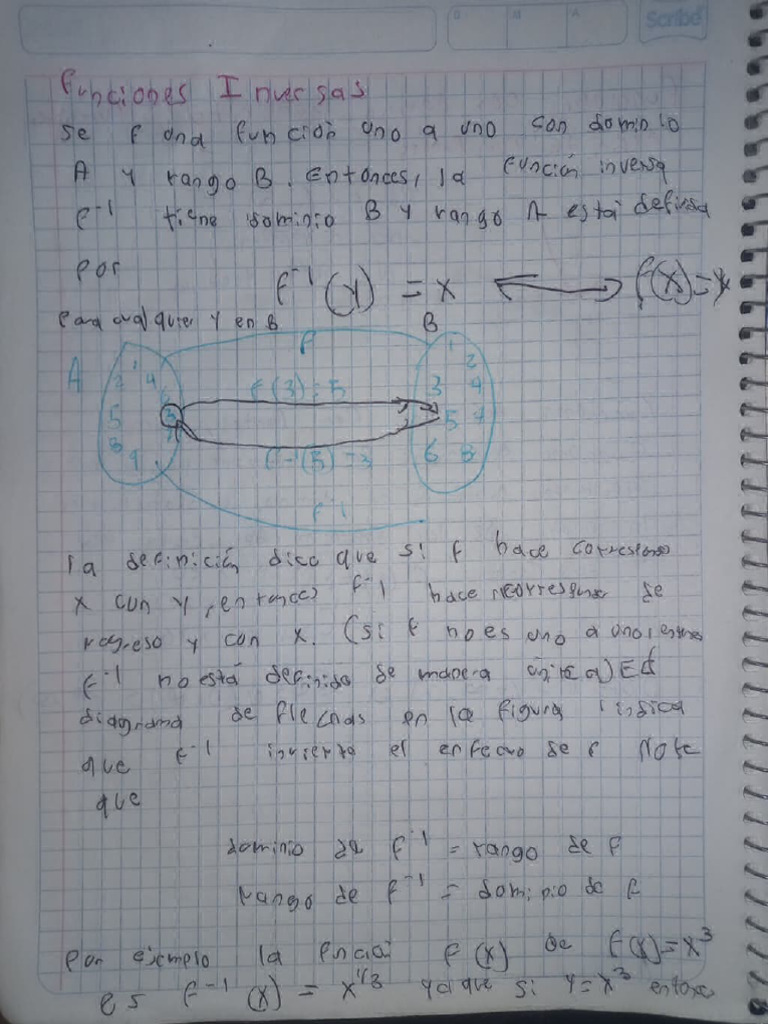 Scribe
Funciones Inversas
Se f una función uno a uno con dominio
A y rango B. Entonces, la función inversa
f⁻¹ tiene dominio B y rango A está definida
por
f⁻¹(y) = x ⟷ f(x) = y
Para cualquier y en B
f B
A
1 2
2 4 3 4
6 f(3) = 5
5 3 5 7
7
8 9 f⁻¹(5) = 3 6 8
f⁻¹
la definición dice que si f hace corresponder
x con y, entonces f⁻¹ hace corresponder de
regreso y con x. (si f no es uno a uno, entonces
f⁻¹ no está definido de manera única) El
diagrama de flechas en la figura indica
que f⁻¹ invierte el enfecto de f Note
que
dominio de f⁻¹ = rango de f
rango de f⁻¹ = dominio de f
Por ejemplo la f(x) de f(x) = x³
es f⁻¹(x) = x^1/3 ya que si y = x³ entonces